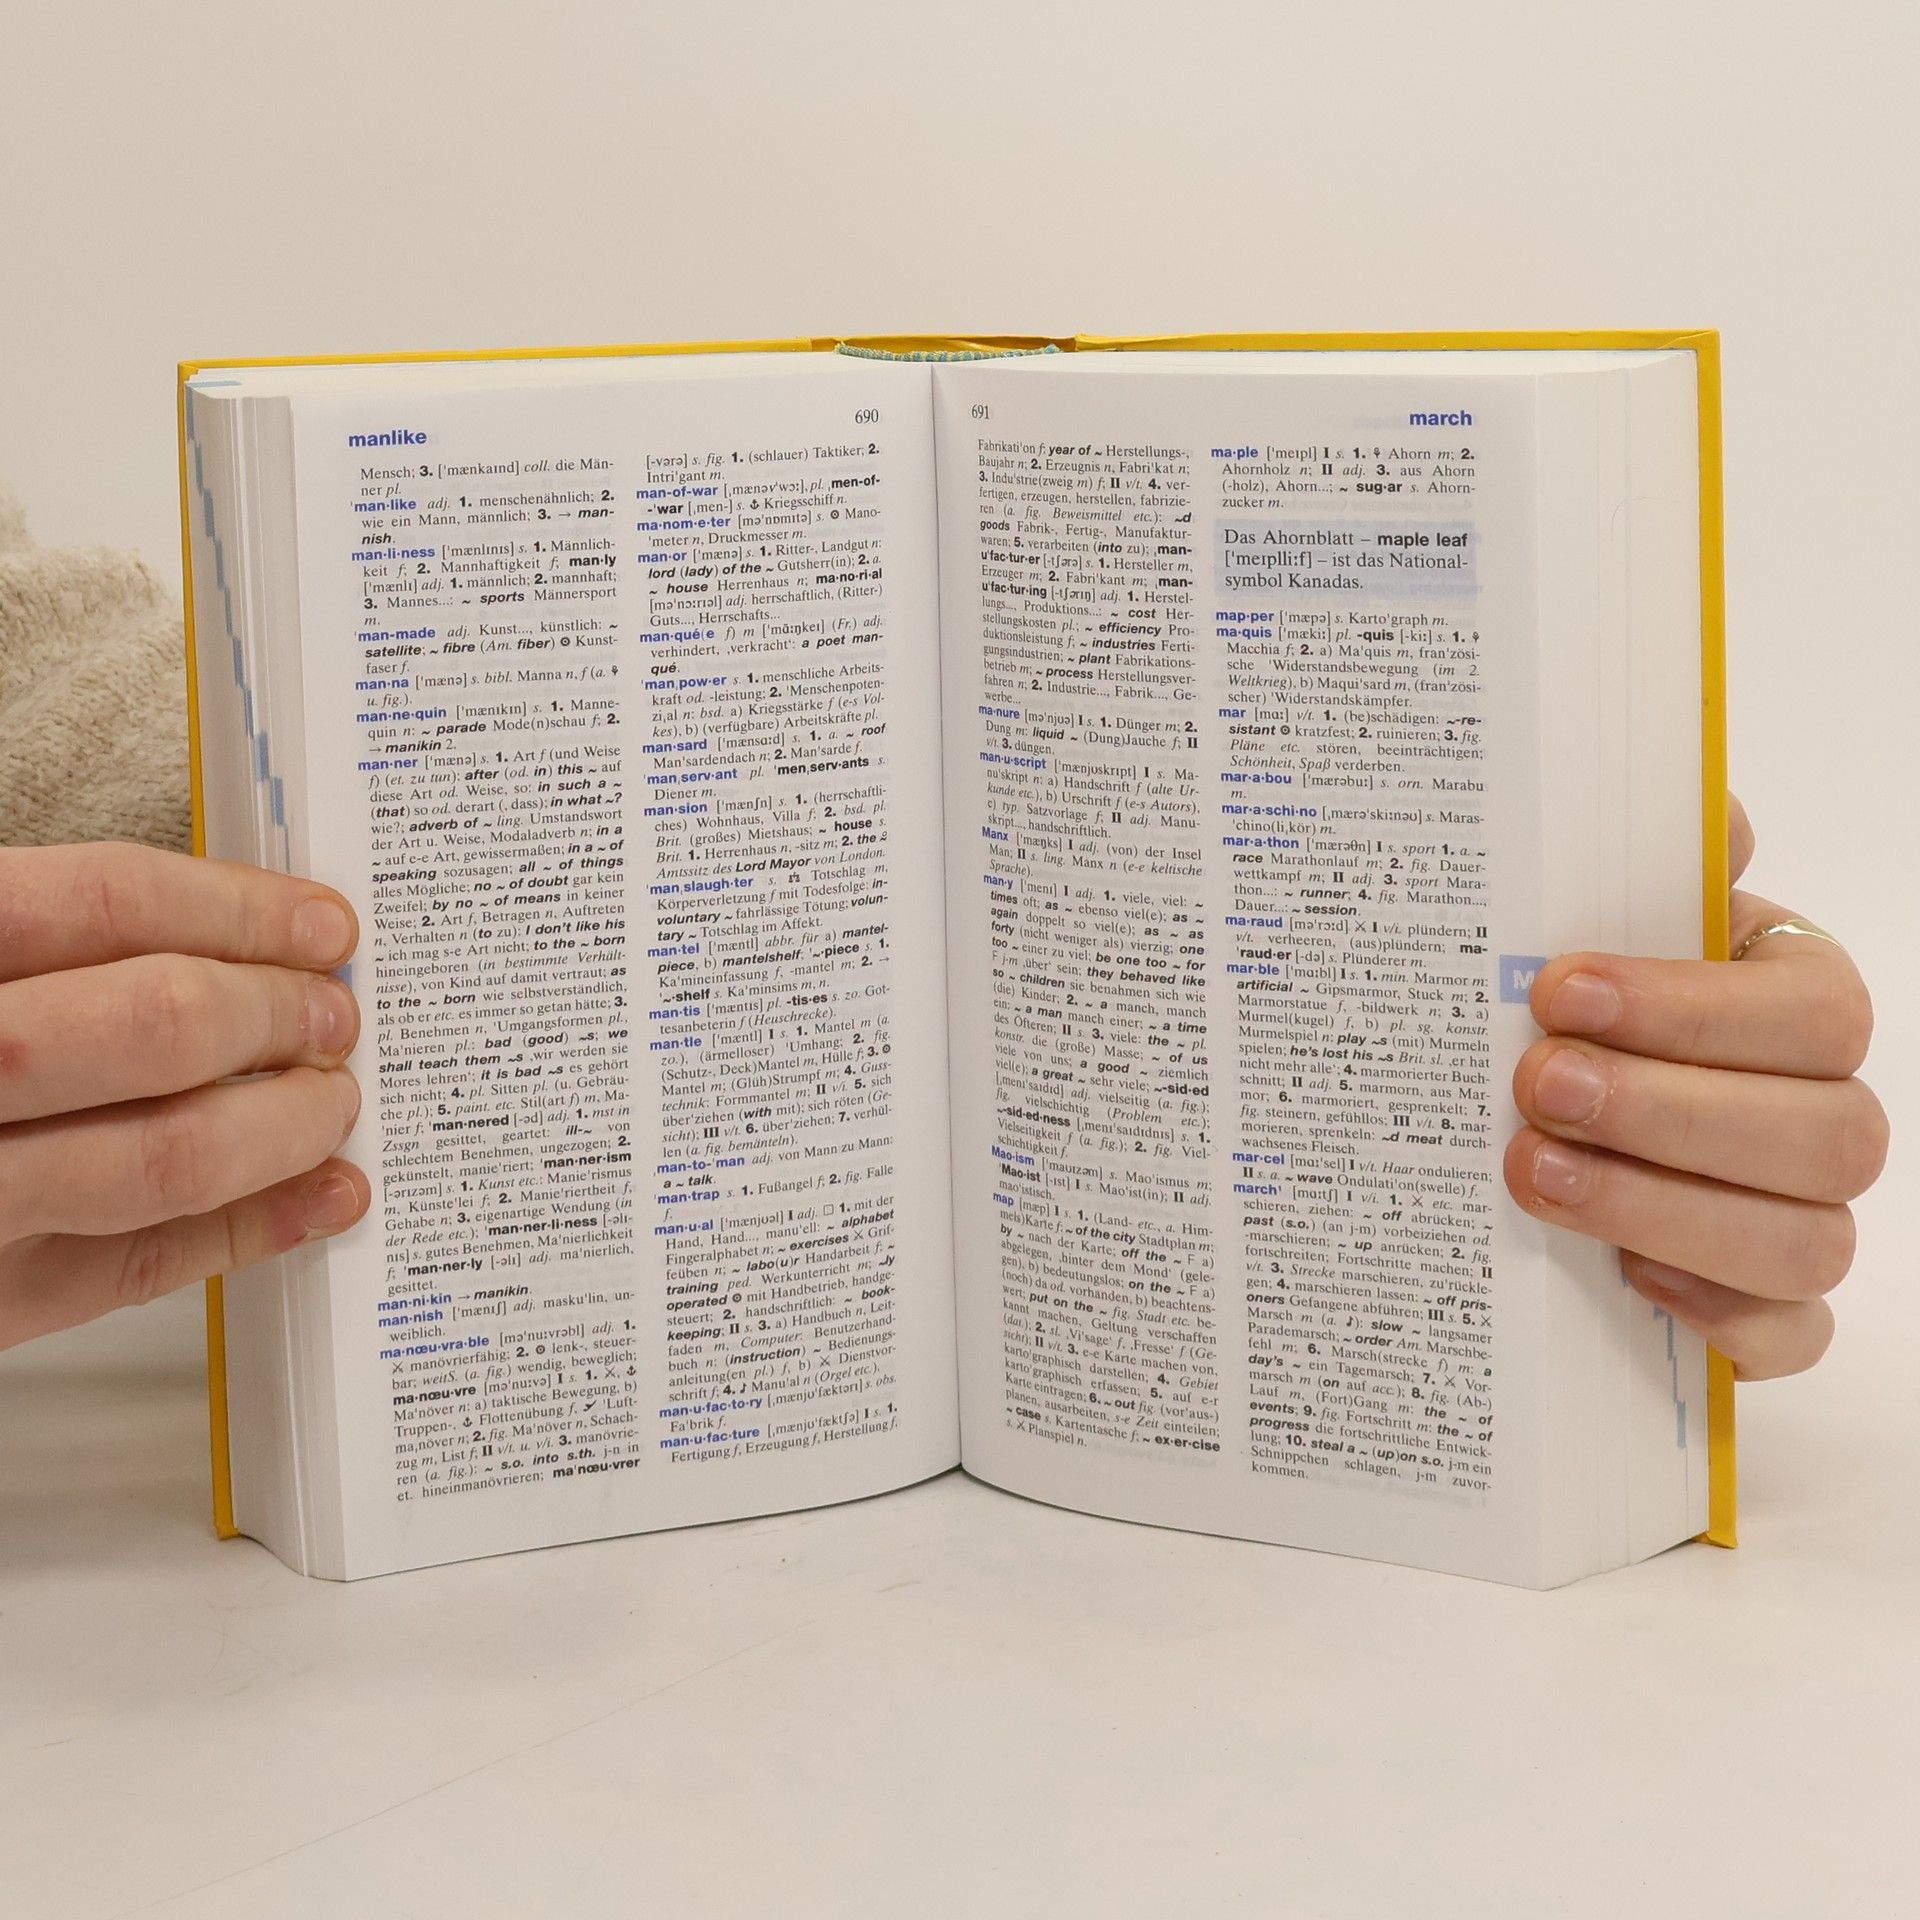 manlike
690
Mensch; 3. ['mænkaınd] coll. die Män-
ner pl.
'man·like adj. 1. menschenähnlich; 2.
wie ein Mann, männlich; 3. → man-
nish.
man·li·ness ['mænlınıs] s. 1. Männlich-
keit f; 2. Mannhaftigkeit f; man·ly
['mænlı] adj. 1. männlich; 2. mannhaft;
3. Mannes...: ~ sports Männersport
m.
'man-made adj. Kunst..., künstlich: ~
satellite; ~ fibre (Am. fiber) ⚙ Kunst-
faser f.
man·na ['mænə] s. bibl. Manna n, f (a. ⚘
u. fig.).
man·ne·quin ['mænıkın] s. 1. Manne-
quin n: ~ parade Mode(n)schau f; 2.
→ manikin 2.
man·ner ['mænə] s. 1. Art f (und Weise
f) (et. zu tun): after (od. in) this ~ auf
diese Art od. Weise, so; in such a ~
(that) so od. derart (, dass); in what ~?
wie?; adverb of ~ ling. Umstandswort
der Art u. Weise, Modaladverb n; in a
~ auf e-e Art, gewissermaßen; in a ~ of
speaking sozusagen; all ~ of things
alles Mögliche; no ~ of doubt gar kein
Zweifel; by no ~ of means in keiner
Weise; 2. Art f, Betragen n, Auftreten
n, Verhalten n (to zu); I don't like his
~ ich mag s-e Art nicht; to the ~ born
hineingeboren (in bestimmte Verhält-
nisse), von Kind auf damit vertraut; as
to the ~ born wie selbstverständlich,
als ob er etc. es immer so getan hätte; 3.
pl. Benehmen n, 'Umgangsformen pl.,
Ma'nieren pl.: bad (good) ~s; we
shall teach them ~s ‚wir werden sie
Mores lehren'; it is bad ~s es gehört
sich nicht; 4. pl. Sitten pl. (u. Gebräu-
che pl.); 5. paint. etc. Stil(art f) m, Ma-
'nier f; 'man·nered [-əd] adj. 1. mst in
Zssgn gesittet, geartet: ill-~ von
schlechtem Benehmen, ungezogen; 2.
gekünstelt, manie'riert; 'man·ner·ism
[-ərızəm] s. 1. Kunst etc.: Manie'rismus
m, Künste'lei f; 2. Manie'riertheit f,
Gehabe n; 3. eigenartige Wendung (in
der Rede etc.); 'man·ner·li·ness [-əlı-
nıs] s. gutes Benehmen, Ma'nierlichkeit
f; 'man·ner·ly [-əlı] adj. ma'nierlich,
gesittet.
man·ni·kin → manikin.
man·nish ['mænıʃ] adj. masku'lin, un-
weiblich.
ma·nœu·vra·ble [mə'nuːvrəbl] adj. 1.
⚔ manövrierfähig; 2. ⚙ lenk-, steuer-
bar; weitS. (a. fig.) wendig, beweglich;
ma·nœu·vre [mə'nuːvə] I s. 1. ⚔, ⚓
Ma'növer n: a) taktische Bewegung, b)
Truppen-, ⚓ Flottenübung f, ✈ 'Luft-
ma,növer n; 2. fig. Ma'növer n, Schach-
zug m, List f; II v/t. u. v/i. 3. manövrie-
ren (a. fig.): ~ s.o. into s.th. j-n in
et. hineinmanövrieren; ma'nœu·vrer
[-vərə] s. fig. 1. (schlauer) Taktiker; 2.
Intri'gant m.
man-of-war [ˌmænəv'wɔː], pl. ˌmen-of-
-'war [ˌmen-] s. ⚓ Kriegsschiff n.
ma·nom·e·ter [mə'nɒmıtə] s. ⚙ Mano-
'meter n, Druckmesser m.
man·or ['mænə] s. 1. Ritter-, Landgut n:
lord (lady) of the ~ Gutsherr(in); 2. a.
~ house Herrenhaus n; ma·no·ri·al
[mə'nɔːrıəl] adj. herrschaftlich, (Ritter-)
Guts..., Herrschafts...
man·qué(e f) m ['mɑ̃ːŋkeı] (Fr.) adj.
verhindert, ‚verkracht': a poet man-
qué.
'man,pow·er s. 1. menschliche Arbeits-
kraft od. -leistung; 2. 'Menschenpoten-
zi,al n: bsd. a) Kriegsstärke f (e-s Vol-
kes), b) (verfügbare) Arbeitskräfte pl.
man·sard ['mænsɑːd] s. 1. a. ~ roof
Man'sardendach n; 2. Man'sarde f.
'man,serv·ant pl. 'men,serv·ants s.
Diener m.
man·sion ['mænʃn] s. 1. (herrschaftli-
ches) Wohnhaus, Villa f; 2. bsd. pl.
Brit. (großes) Mietshaus; ~ house s.
Brit. 1. Herrenhaus n, -sitz m; 2. the 2
Amtssitz des Lord Mayor von London.
'man,slaugh·ter s. ⚖ Totschlag m,
Körperverletzung f mit Todesfolge: in-
voluntary ~ fahrlässige Tötung; volun-
tary ~ Totschlag im Affekt.
man·tel ['mæntl] abbr. für a) mantel-
piece, b) mantelshelf; '~·piece s. 1.
Ka'mineinfassung f, -mantel m; 2. →
'~·shelf s. Ka'minsims m, n.
man·tis ['mæntıs] pl. -tis·es s. zo. Got-
tesanbeterin f (Heuschrecke).
man·tle ['mæntl] I s. 1. Mantel m (a.
zo.), (ärmelloser) 'Umhang; 2. fig.
(Schutz-, Deck)Mantel m, Hülle f; 3. ⚙
Mantel m; (Glüh)Strumpf m; 4. Guss-
technik: Formmantel m; II v/i. 5. sich
über'ziehen (with mit); sich röten (Ge-
sicht); III v/t. 6. über'ziehen; 7. verhül-
len (a. fig. bemänteln).
ˌman-to-'man adj. von Mann zu Mann:
a ~ talk.
'man·trap s. 1. Fußangel f; 2. fig. Falle
f.
man·u·al ['mænjʊəl] I adj. □ 1. mit der
Hand, Hand..., manu'ell: ~ alphabet
Fingeralphabet n; ~ exercises ⚔ Grif-
feüben n; ~ labo(u)r Handarbeit f; ~
training ped. Werkunterricht m; ~ly
operated ⚙ mit Handbetrieb, handge-
steuert; 2. handschriftlich: ~ book-
keeping; II s. 3. a) Handbuch n, Leit-
faden m, Computer: Benutzerhand-
buch n: (instruction) ~ Bedienungs-
anleitung(en pl.) f, b) ⚔ Dienstvor-
schrift f; 4. ♪ Manu'al n (Orgel etc.).
man·u·fac·to·ry [ˌmænjʊ'fæktərı] s. obs.
Fa'brik f.
man·u·fac·ture [ˌmænjʊ'fæktʃə] I s. 1.
Fertigung f, Erzeugung f, Herstellung f,
691
march
Fabrikati'on f: year of ~ Herstellungs-,
Baujahr n; 2. Erzeugnis n, Fabri'kat n;
3. Indu'strie(zweig m) f; II v/t. 4. ver-
fertigen, erzeugen, herstellen, fabrizie-
ren (a. fig. Beweismittel etc.): ~d
goods Fabrik-, Fertig-, Manufaktur-
waren; 5. verarbeiten (into zu); ˌman-
u'fac·tur·er [-tʃərə] s. 1. Hersteller m,
Erzeuger m; 2. Fabri'kant m; ˌman-
u'fac·tur·ing [-tʃərıŋ] adj. 1. Herstel-
lungs..., Produktions...: ~ cost Her-
stellungskosten pl.; ~ efficiency Pro-
duktionsleistung f; ~ industries Ferti-
gungsindustrien; ~ plant Fabrikations-
betrieb m; ~ process Herstellungsver-
fahren n; 2. Industrie..., Fabrik..., Ge-
werbe...
ma·nure [mə'njʊə] I s. 1. Dünger m; 2.
Dung m: liquid ~ (Dung)Jauche f; II
v/t. 3. düngen.
man·u·script ['mænjʊskrıpt] I s. Ma-
nu'skript n: a) Handschrift f (alte Ur-
kunde etc.), b) Urschrift f (e-s Autors),
c) typ. Satzvorlage f; II adj. Manu-
skript..., handschriftlich.
Manx ['mæŋks] I adj. (von) der Insel
Man; II s. ling. Manx n (e-e keltische
Sprache).
man·y ['menı] I adj. 1. viele, viel: ~
times oft; as ~ ebenso viel(e); as ~
again doppelt so viel(e); as ~ as
forty (nicht weniger als) vierzig; one
too ~ einer zu viel; be one too ~ for
F j-m ‚über' sein; they behaved like
so ~ children sie benahmen sich wie
(die) Kinder; 2. ~ a manch, manch
ein: ~ a man manch einer; ~ a time
des Öfteren; II s. 3. viele: the ~ pl.
konstr. die (große) Masse; ~ of us
viele von uns; a good ~ ziemlich
viel(e); a great ~ sehr viele; ~-sid·ed
[ˌmenı'saıdıd] adj. vielseitig (a. fig.);
fig. vielschichtig (Problem etc.);
~-sid·ed·ness [ˌmenı'saıdıdnıs] s. 1.
Vielseitigkeit f (a. fig.); 2. fig. Viel-
schichtigkeit f.
Mao·ism ['maʊızəm] s. Mao'ismus m;
'Mao·ist [-ıst] I s. Mao'ist(in); II adj.
mao'istisch.
map [mæp] I s. 1. (Land- etc., a. Him-
mels)Karte f: ~ of the city Stadtplan m;
by ~ nach der Karte; off the ~ F a)
abgelegen, ‚hinter dem Mond' (gele-
gen), b) bedeutungslos; on the ~ F a)
(noch) da od. vorhanden, b) beachtens-
wert; put on the ~ fig. Stadt etc. be-
kannt machen, Geltung verschaffen
(dat.); 2. sl. ‚Vi'sage' f, ‚Fresse' f (Ge-
sicht); II v/t. 3. e-e Karte machen von,
karto'graphisch darstellen; 4. Gebiet
karto'graphisch erfassen; 5. auf e-r
Karte eintragen; 6. ~ out fig. (vor'aus-)
planen, ausarbeiten, s-e Zeit einteilen;
~ case s. Kartentasche f; ~ ex·er·cise
s. ⚔ Planspiel n.
ma·ple ['meıpl] I s. 1. ⚘ Ahorn m; 2.
Ahornholz n; II adj. 3. aus Ahorn
(-holz), Ahorn...; ~ sug·ar s. Ahorn-
zucker m.
Das Ahornblatt – maple leaf
['meıplliːf] – ist das National-
symbol Kanadas.
map·per ['mæpə] s. Karto'graph m.
ma·quis ['mækiː] pl. -quis [-kiː] s. 1. ⚘
Macchia f; 2. a) Ma'quis m, fran'zösi-
sche 'Widerstandsbewegung (im 2.
Weltkrieg), b) Maqui'sard m, (fran'zösi-
scher) 'Widerstandskämpfer.
mar [mɑː] v/t. 1. (be)schädigen: ~-re-
sistant ⚙ kratzfest; 2. ruinieren; 3. fig.
Pläne etc. stören, beeinträchtigen;
Schönheit, Spaß verderben.
mar·a·bou ['mærəbuː] s. orn. Marabu
m.
mar·a·schi·no [ˌmærə'skiːnəʊ] s. Maras-
'chino(li,kör) m.
mar·a·thon ['mærəθn] I s. sport 1. a. ~
race Marathonlauf m; 2. fig. Dauer-
wettkampf m; II adj. 3. sport Mara-
thon...: ~ runner; 4. fig. Marathon...,
Dauer...: ~ session.
ma·raud [mə'rɔːd] ⚔ I v/i. plündern; II
v/t. verheeren, (aus)plündern; ma-
'raud·er [-də] s. Plünderer m.
mar·ble ['mɑːbl] I s. 1. min. Marmor m:
artificial ~ Gipsmarmor, Stuck m; 2.
Marmorstatue f, -bildwerk n; 3. a)
Murmel(kugel) f, b) pl. sg. konstr.
Murmelspiel n: play ~s (mit) Murmeln
spielen; he's lost his ~s Brit. sl. ‚er hat
nicht mehr alle'; 4. marmorierter Buch-
schnitt; II adj. 5. marmorn, aus Mar-
mor; 6. marmoriert, gesprenkelt; 7.
fig. steinern, gefühllos; III v/t. 8. mar-
morieren, sprenkeln: ~d meat durch-
wachsenes Fleisch.
mar·cel [mɑː'sel] I v/t. Haar ondulieren;
II s. a. ~ wave Ondulati'on(swelle) f.
march¹ [mɑːtʃ] I v/i. 1. ⚔ etc. mar-
schieren, ziehen: ~ off abrücken; ~
past (s.o.) (an j-m) vorbeiziehen od.
-marschieren; ~ up anrücken; 2. fig.
fortschreiten; Fortschritte machen; II
v/t. 3. Strecke marschieren, zu'rückle-
gen; 4. marschieren lassen: ~ off pris-
oners Gefangene abführen; III s. 5. ⚔
Marsch m (a. ♪): slow ~ langsamer
Parademarsch; ~ order Am. Marschbe-
fehl m; 6. Marsch(strecke f) m: a
day's ~ ein Tagemarsch; 7. ⚔ Vor-
marsch m (on auf acc.); 8. fig. (Ab-)
Lauf m, (Fort)Gang m: the ~ of
events; 9. fig. Fortschritt m: the ~ of
progress die fortschrittliche Entwick-
lung; 10. steal a ~ (up)on s.o. j-m ein
Schnippchen schlagen, j-m zuvor-
kommen.
M